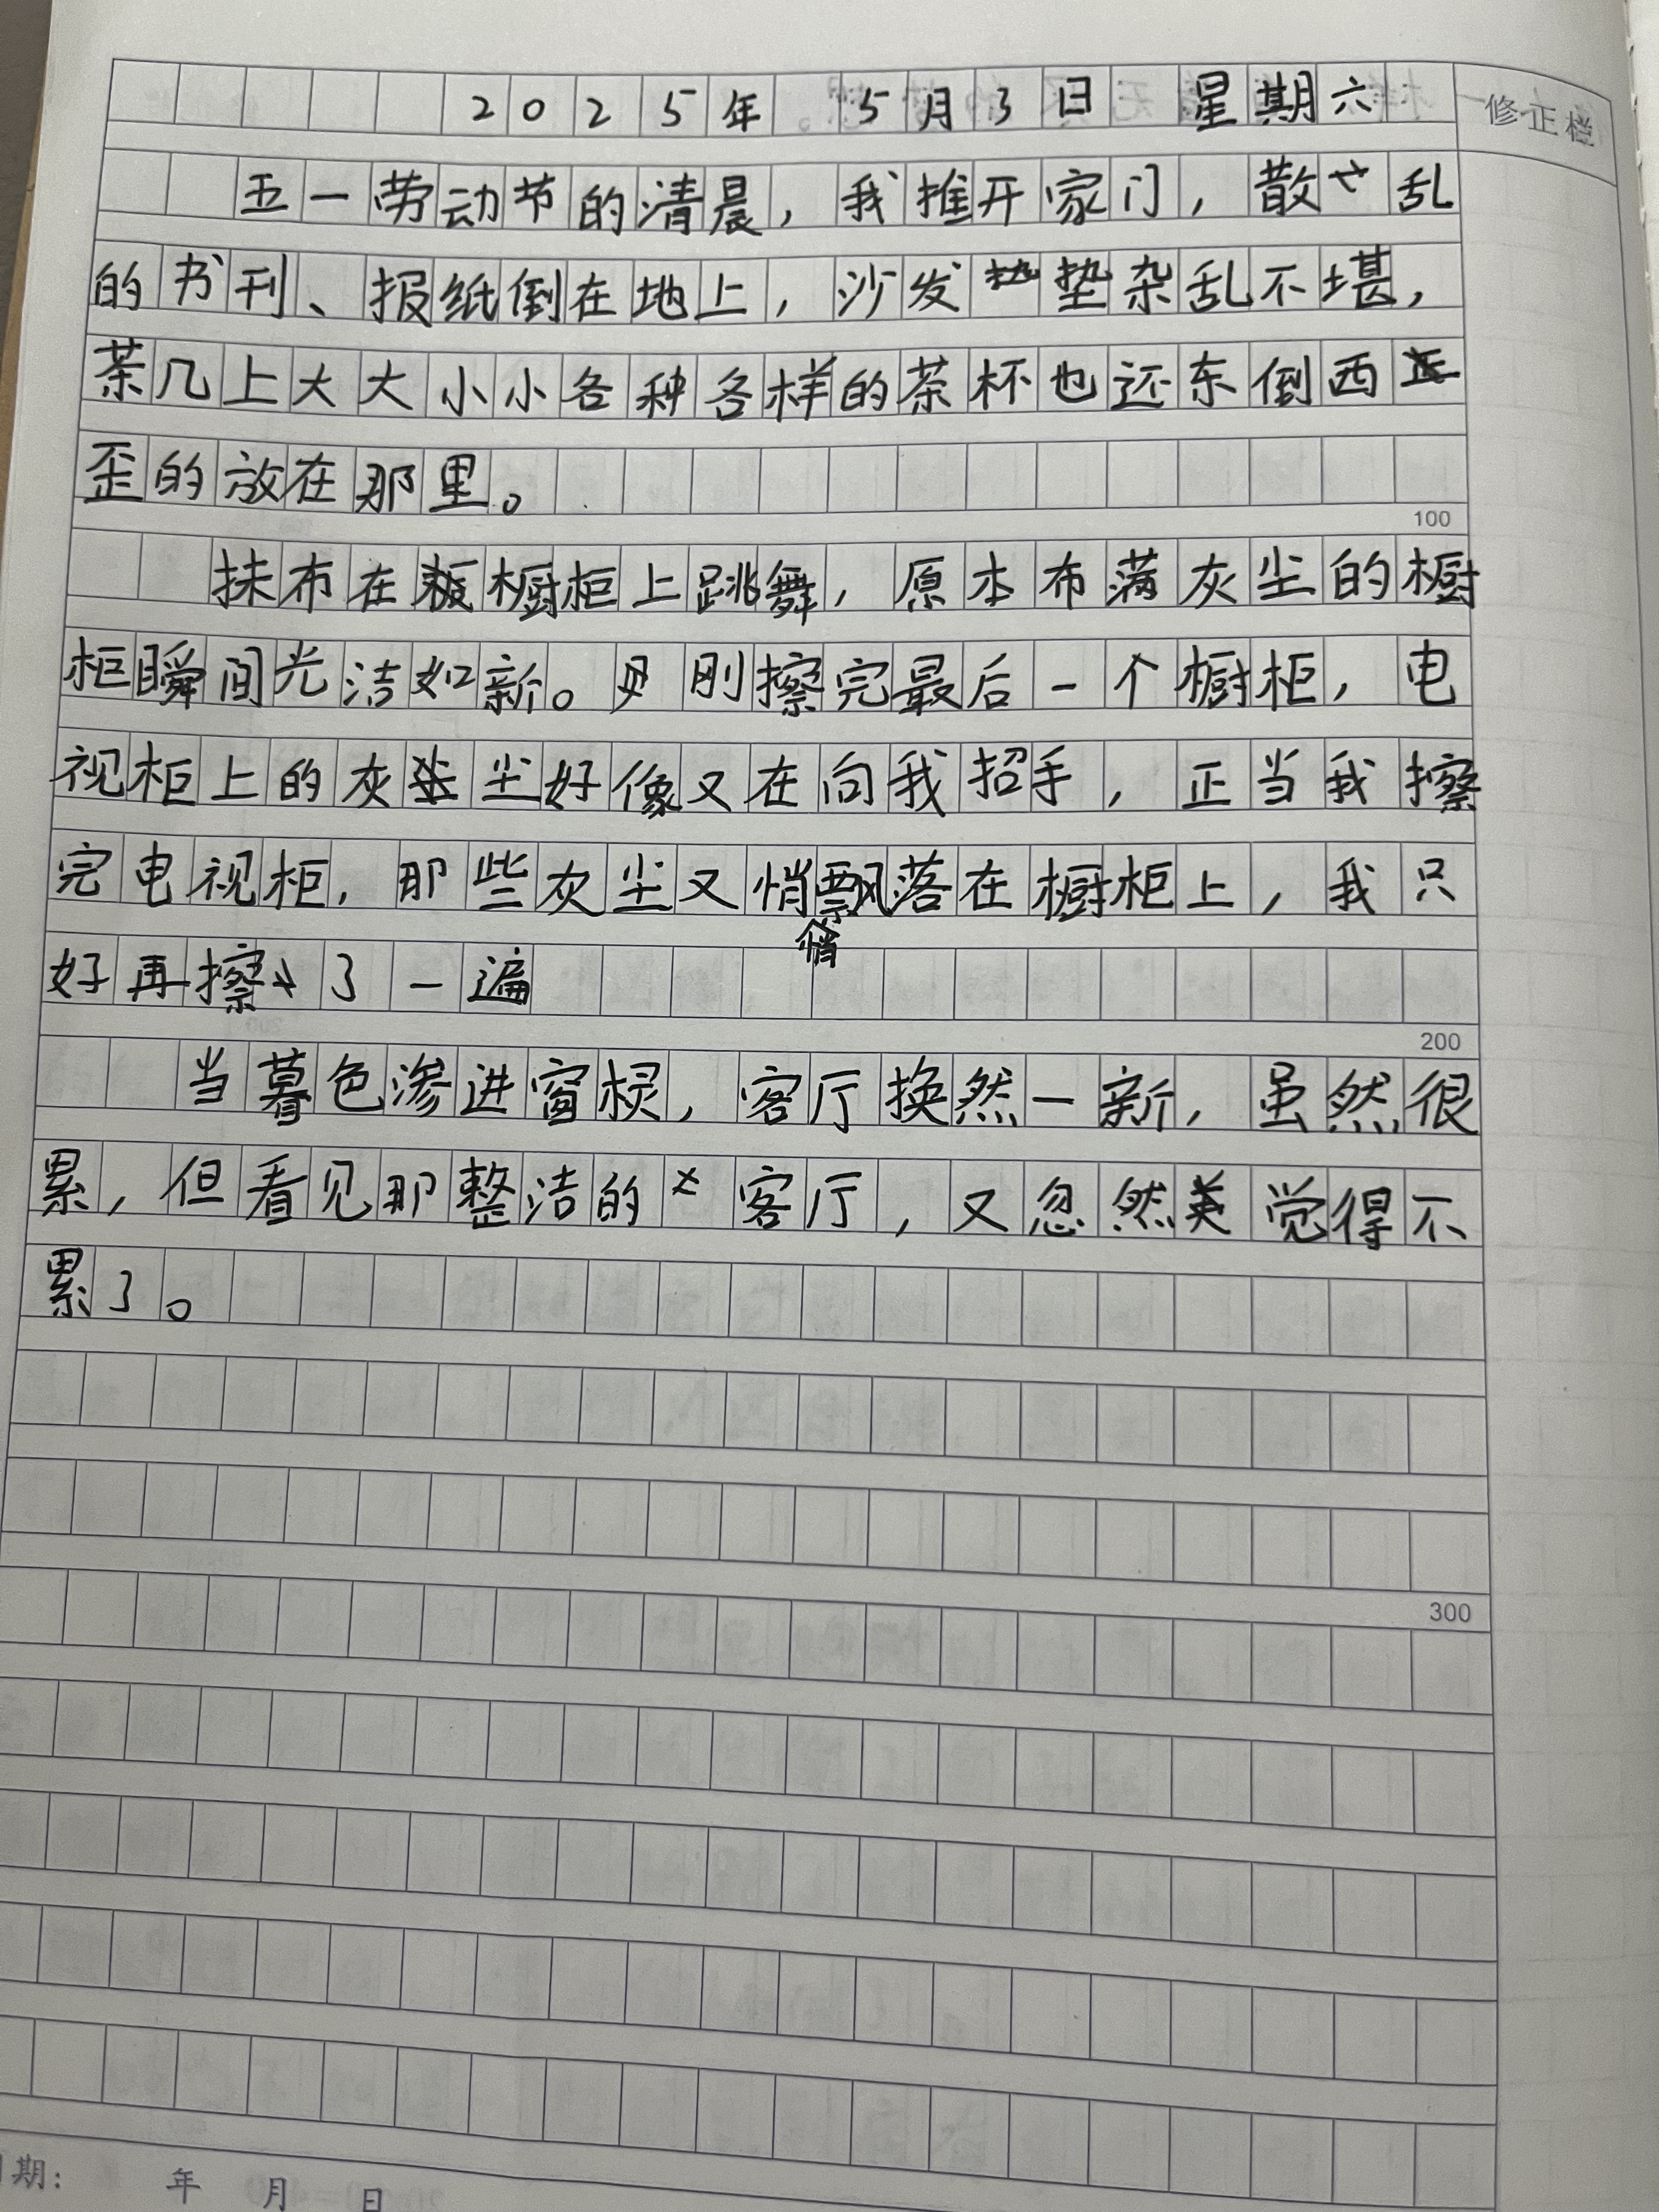 2025年 5月3日 星期六
修正栏
五一劳动节的清晨，我推开家门，散乱
的书刊、报纸倒在地上，沙发垫杂乱不堪，
茶几上大大小小各种各样的茶杯也还东倒西
歪的放在那里。
100
抹布在橱柜上跳舞，原本布满灰尘的橱
柜瞬间光洁如新。刚擦完最后一个橱柜，电
视柜上的灰尘好像又在向我招手，正当我擦
完电视柜，那些灰尘又悄悄飘落在橱柜上，我只
好再擦了一遍
200
当暮色渗进窗棂，客厅换然一新，虽然很
累，但看见那整洁的客厅，又忽然觉得不
累了。
300
期： 年 月 日